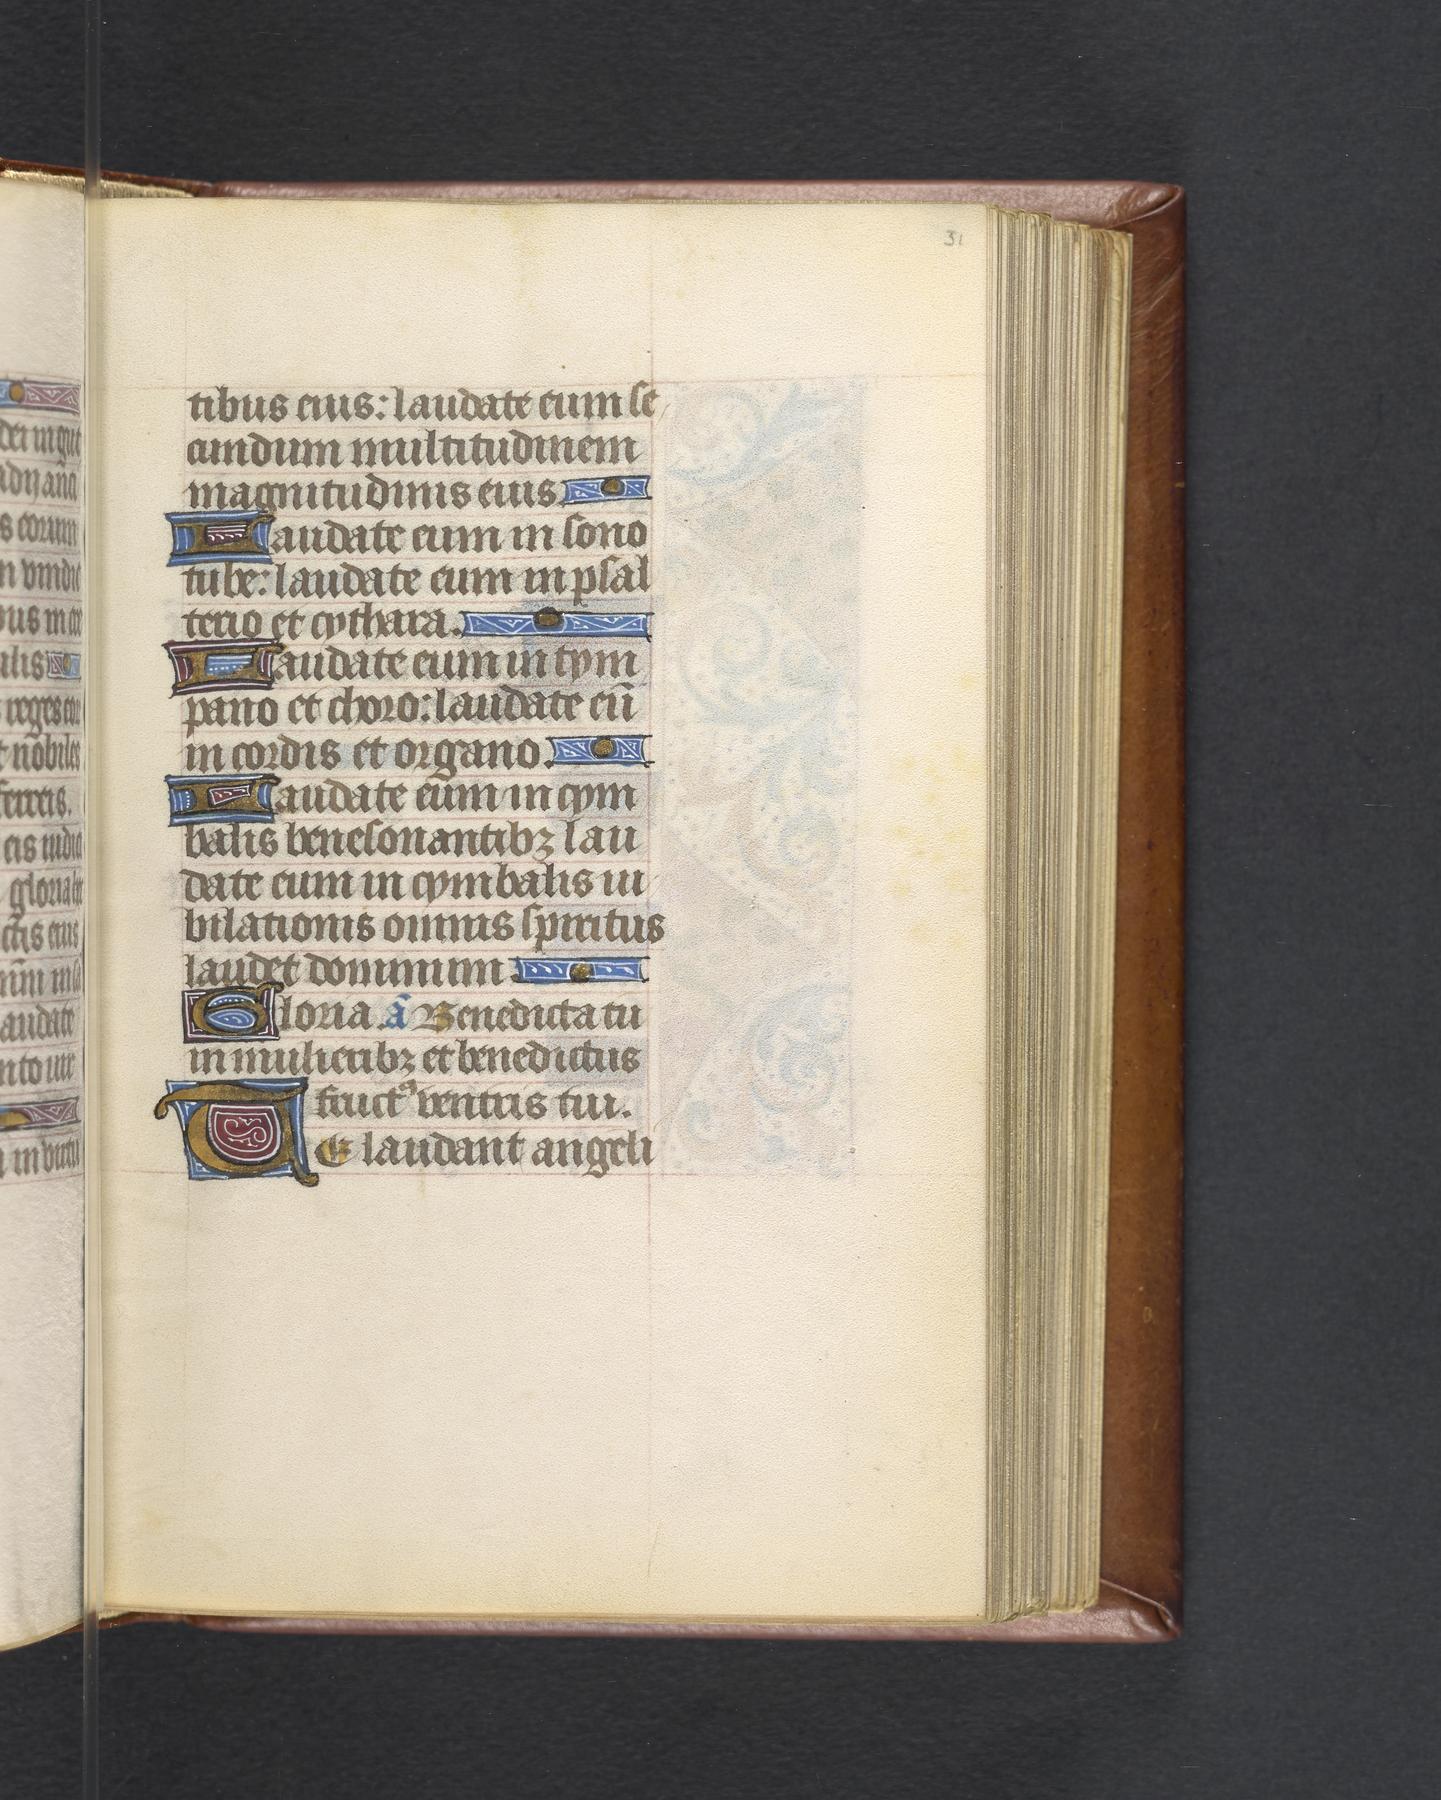 31
tibus eius: laudate eum se
cundum multitudinem
magnitudinis eius.
Laudate eum in sono
tube: laudate eum in psal
terio et cythara.
Laudate eum in tym
pano et choro: laudate eū
in cordis et organo.
Laudate eum in cym
balis benesonantibꝫ lau
date eum in cymbalis iu
bilationis omnis spiritus
laudet dominum.
Gloria. ā Benedicta tu
in mulieribꝫ et benedictus
fructꝰ ventris tui.
TE laudant angeli
s eorum
ulis
t nobiles
ferreis.
audate